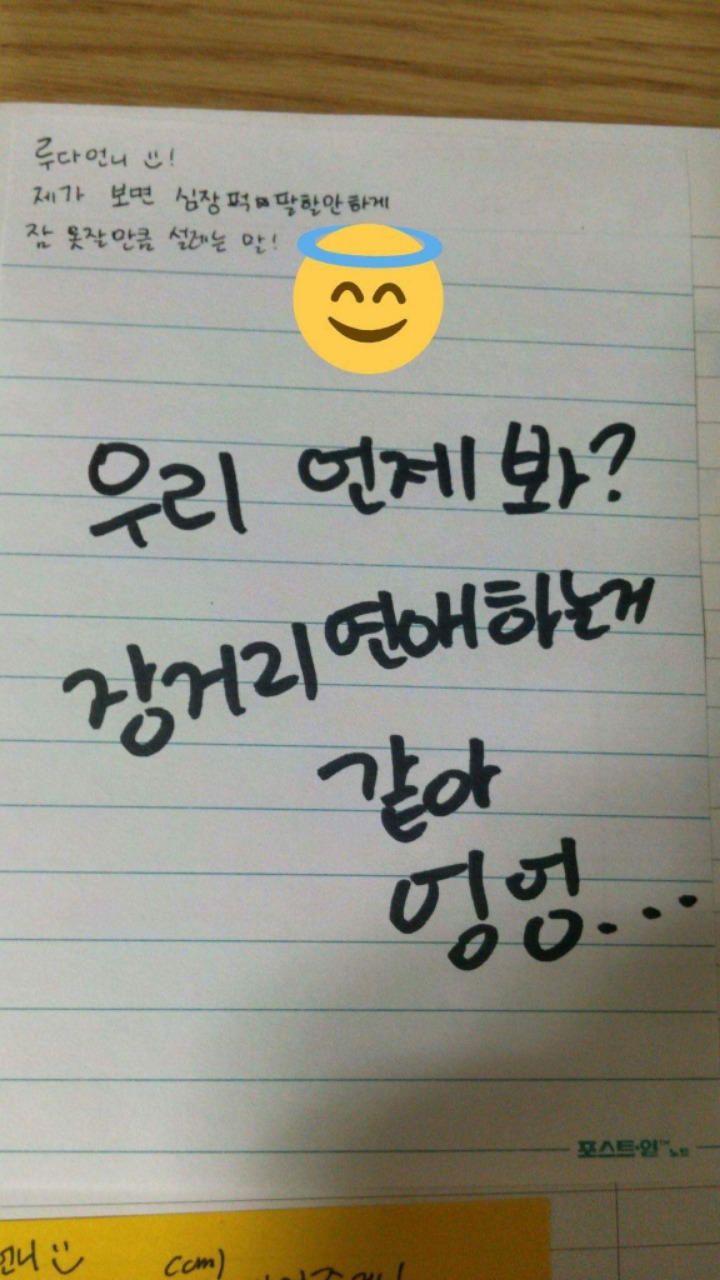 루다언니 :)!
제가 보면 심장 퍽팔할만하게
잠 못잘만큼 설레는 말!
우리 언제봐?
장거리연애하는거
같아
엉엉...
포스트-잇™노트
언니 :)
ccm)